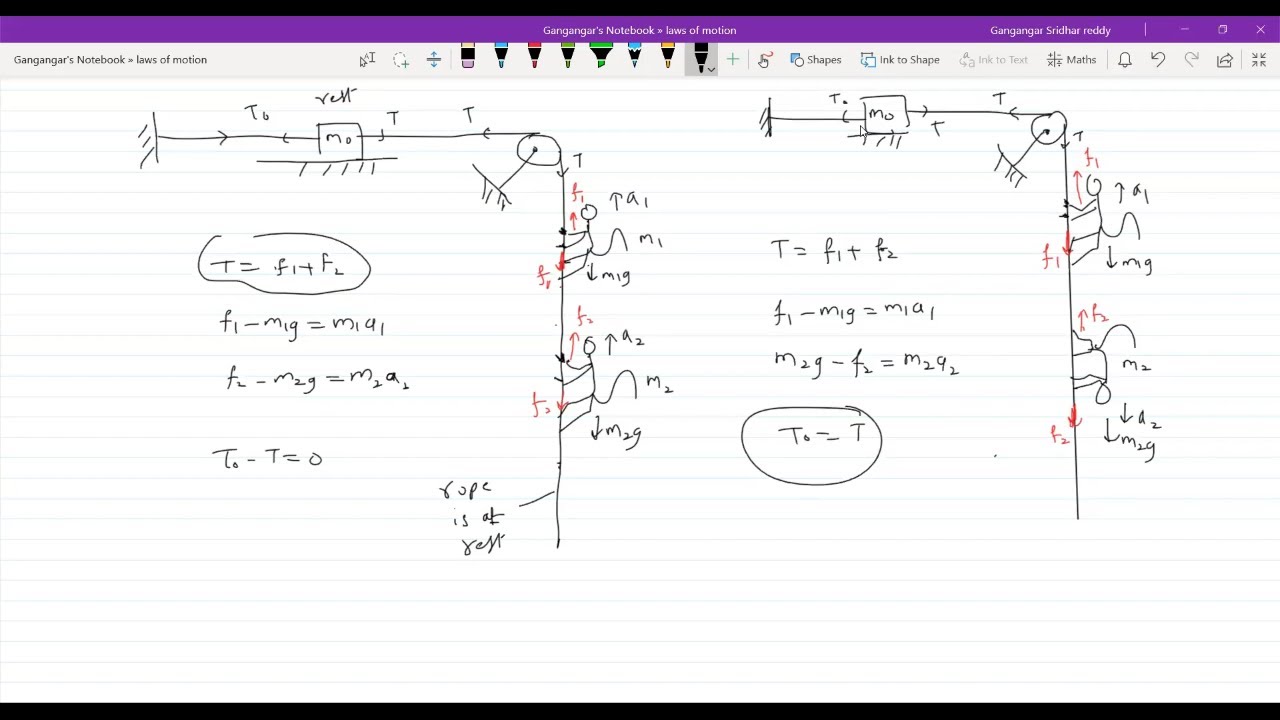 Gangangar's Notebook » laws of motion
Gangangar Sridhar reddy
Gangangar's Notebook » laws of motion
Shapes
Ink to Shape
Ink to Text
Maths
rest
T₀
m₀
T
T
T
f₁
a₁
m₁
f₁
m₁g
f₂
a₂
m₂
f₂
m₂g
T = f₁ + f₂
f₁ – m₁g = m₁a₁
f₂ – m₂g = m₂a₂
T₀ – T = 0
rope
is at
rest
T₀
m₀
T
T
T
f₁
a₁
f₁
m₁g
f₂
m₂
a₂
f₂
m₂g
T = f₁ + f₂
f₁ – m₁g = m₁a₁
m₂g – f₂ = m₂a₂
T₀ = T